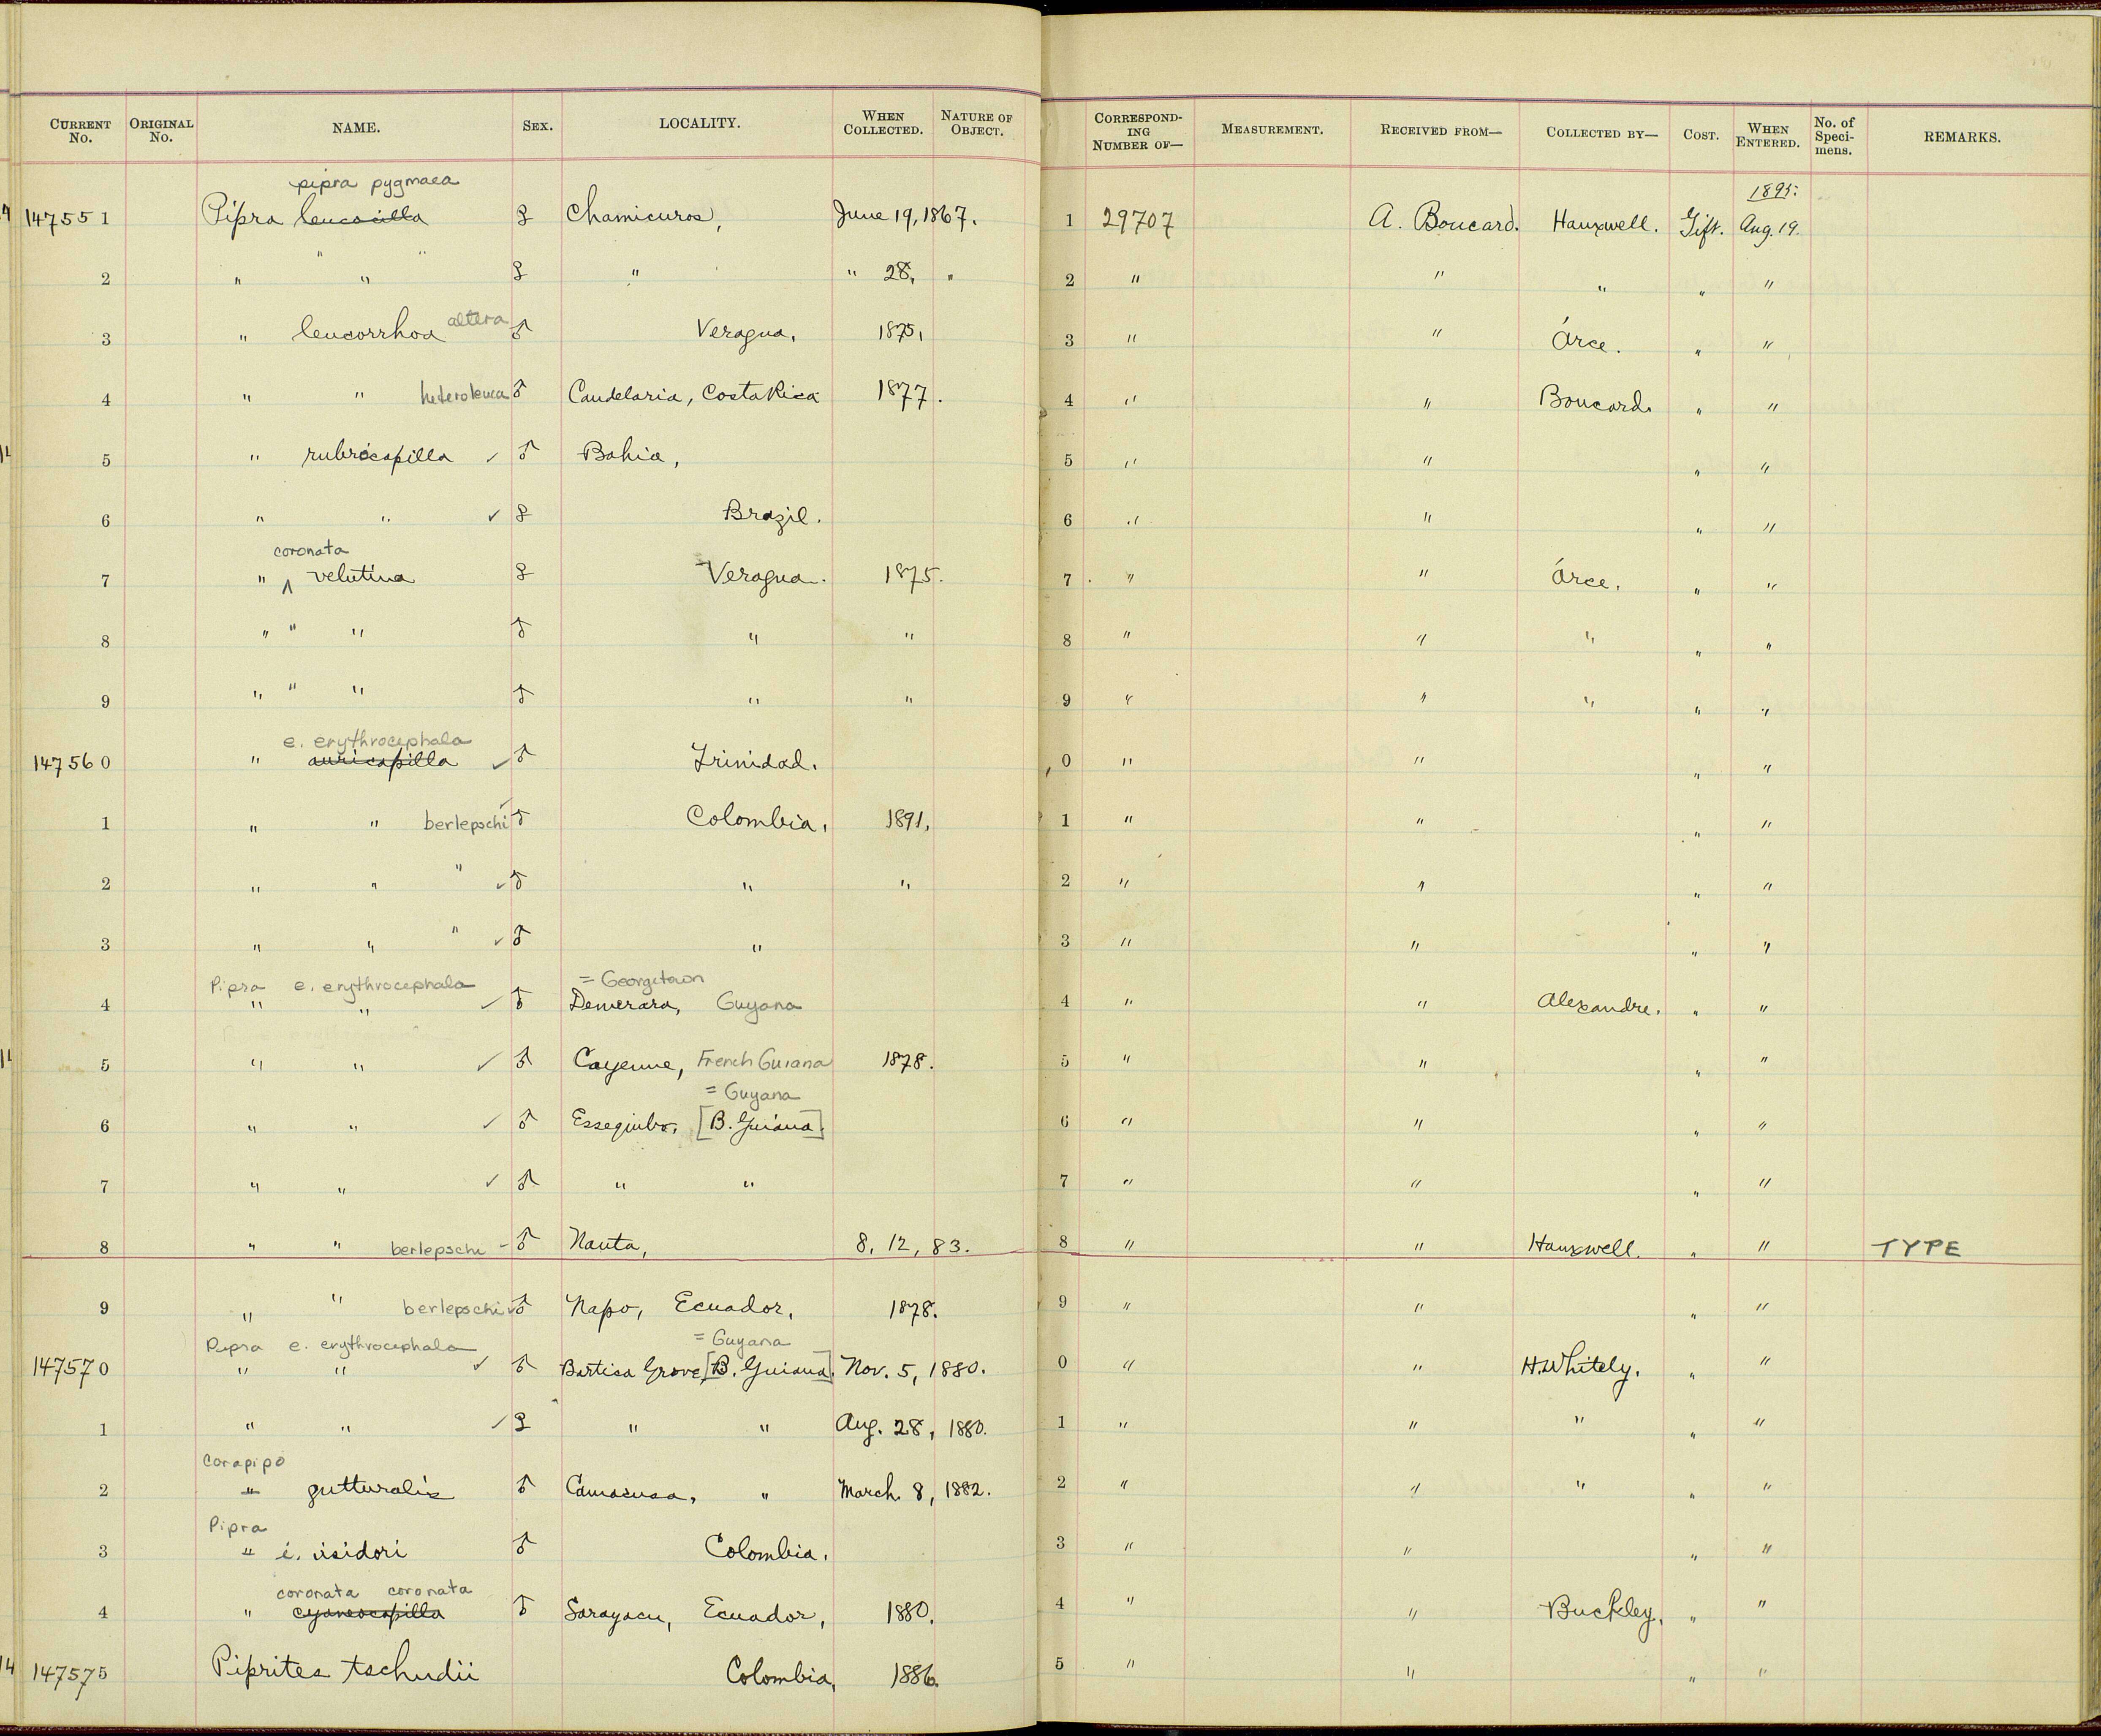 CURRENT No. ORIGINAL No. NAME. SEX. LOCALITY. WHEN COLLECTED. NATURE OF OBJECT. CORRESPONDING NUMBER OF— MEASUREMENT. RECEIVED FROM— COLLECTED BY— COST. WHEN ENTERED. No. of Specimens. REMARKS.
pipra pygmaea 1895.
147551 Pipra leucocilla ♀ Chamicuros, June 19, 1867. 1 29707 A. Boucard. Hauxwell. Gift. Aug. 19.
2 " " ♀ " " 28, " 2 " " " " "
3 " leucorrhoa altera ♂ Veragua, 1875, 3 " " Arce. " "
4 " " heteroleuca ♂ Candelaria, Costa Rica 1877. 4 " " Boucard. " "
5 " rubrocapilla ✓ ♂ Bahia, 5 " " " "
6 " " ✓ ♀ Brazil. 6 " " " "
coronata
7 " ^ velutina ♀ Veragua. 1875. 7 " " Arce. " "
8 " " " ♂ " " 8 " " " " "
9 " " " ♂ " " 9 " " " " "
e. erythrocephala
147560 " auricapilla ✓ ♂ Trinidad. 0 " " " "
1 " " berlepschi ✓ ♂ Colombia, 1891, 1 " " " "
2 " " " ✓ ♂ " " 2 " " " "
3 " " " ✓ ♂ " 3 " " " "
Pipra e. erythrocephala = Georgetown
4 " " ✓ ♂ Demerara, Guyana 4 " " Alexandre. " "
5 " " ✓ ♂ Cayenne, French Guiana 1878. 5 " " " "
= Guyana
6 " " ✓ ♂ Essequibo, [B. Guiana] 6 " " " "
7 " " ✓ ♂ " " 7 " " " "
8 " " berlepschi - ♂ Nauta, 8, 12, 83. 8 " " Hauxwell. " " TYPE
9 " " berlepschi ✓ ♂ Napo, Ecuador, 1878. 9 " " " "
Pipra e. erythrocephala = Guyana
147570 " " ✓ ♂ Bartica Grove, [B. Guiana]. Nov. 5, 1880. 0 " " H. Whitely. " "
1 " " ✓ ♀ " " Aug. 28, 1880. 1 " " " " "
Corapipo
2 " gutturalis ♂ Camacusa, " March 8, 1882. 2 " " " " "
Pipra
3 " i. isidori ♂ Colombia. 3 " " " "
coronata coronata
4 " cyaneocapilla ♂ Sarayacu, Ecuador, 1880. 4 " " Buckley. " "
147575 Piprites tschudii Colombia, 1886. 5 " " " "